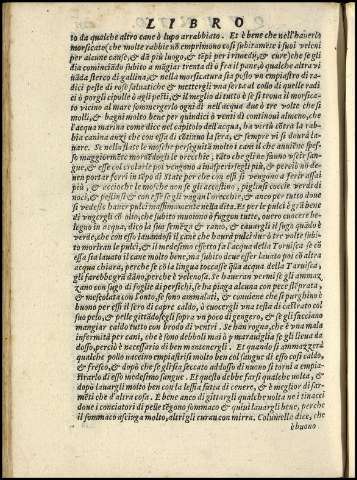 LIBRO
to da qualche altro cane ò lupo arrabbiato. Et è bene che nell'hauerlo
morsicato (che molte rabbie nõ emprimono così subitamẽte i suoi veleni
per alcune cause, & dà più luogo, & tẽpi per i rimedij, & cure) che se gli
dia cominciãdo subito à mãgiar trenta dì ò frà il pane, ò qualche altra vi
uãda sterco di gallina, & nella morsicatura sia posto vn empiastro di ra-
dici peste di rose saluatiche & mettergli vna fetta al collo di quelle radi
ci ò porgli cipolle ò agli pesti, & il meglio di tutto è se si troua il morsica-
to vicino al mare sommergerlo ogni dì nell'acqua due ò tre volte che si
molli, & bagni molto bene per quindici ò venti dì continoui almeno, che
l'acqua marina come dice nel capitolo dell'acqua, hà virtù cõtra la rab-
bia canina anzi che con essa di cõtinuo la fera, & sempre vi si deurà la-
uare. Se nella state le mosche perseguitã molto i cani il che auuiẽne spes-
so maggiormẽte mordẽdogli le orecchie, tãto che gli ne fanno vscire san-
gue, & esse col ciolarle poi vengono à inasprirsegli più, & perciò nõ de-
ura portar ferri in tẽpo di State per che con essi si vengono à ferir assai
più, & acciòche le mosche non gli accostino, piglinsi coccie verdi di
noci, & pestinsi & con esse se gli vngan l'orecchie, & anco per tutto doue
si vedesse hauer pulci massimamente nella state. Et per le pulci è grã bene
di vngergli cõ olio, che subito muoiono ò fuggon tutte, ouero cuocere be-
legno in acqua, dico la sua semẽza & ramo, & cauargli il sugo quãdo è
verde, che con esso lauandosi il cane che haurà pulci due ò tre volte subi-
to moriran le pulci, & il medesimo effetto fa l'acqua della Toruisca se cõ
essa sia lauato il cane molto bene, ma subito deue esser lauato poi cõ altra
acqua chiara, perche se cõ la lingua toccasse più acqua della Toruisca,
gli farebbe grã dãno, perche è velenosa. Se haueran vermi se gli ammaz
zano con sugo di foglie di persichi, se ha piaga alcuna con pece stẽprata,
& mescolata con l'onto, se sono ammalati, & conuiene che si purghino è
buono per essi il sero di capre caldo, ò cuocergli vna testa di castrato col
suo pelo, & pelle gittãdouegli sopra vn poco di gengero, & se gli facciano
mangiar caldo tutto con brodo di ventri. Se han rogna, che è vna mala
infermità per cani, che è sono deboli mai ò per marauiglia se gli lieua da
dosso, perciò è necessario di ben mantenergli. Et quando si ammazzerà
qualche pollo naccino empiastrisi molto ben col sangue di esso così caldo,
& fresco, & dopò che se gli sia seccato addosso di nuouo si torni à empia-
strarlo di esso medesimo sangue. Et questo debbe farsi qualche volta, &
dopò lauargli molto ben con la lessia fatta di cenere, & è meglior di sar-
mẽti che d'altra cosa. È bene anco di gittargli qualche volta ne i tinacci
doue i conciatori di pelle tẽgono sommaco & quiui lauargli bene, perche
il sommaco asciuga molto, altri gli curan con mirra. Columella dice, che
è buono